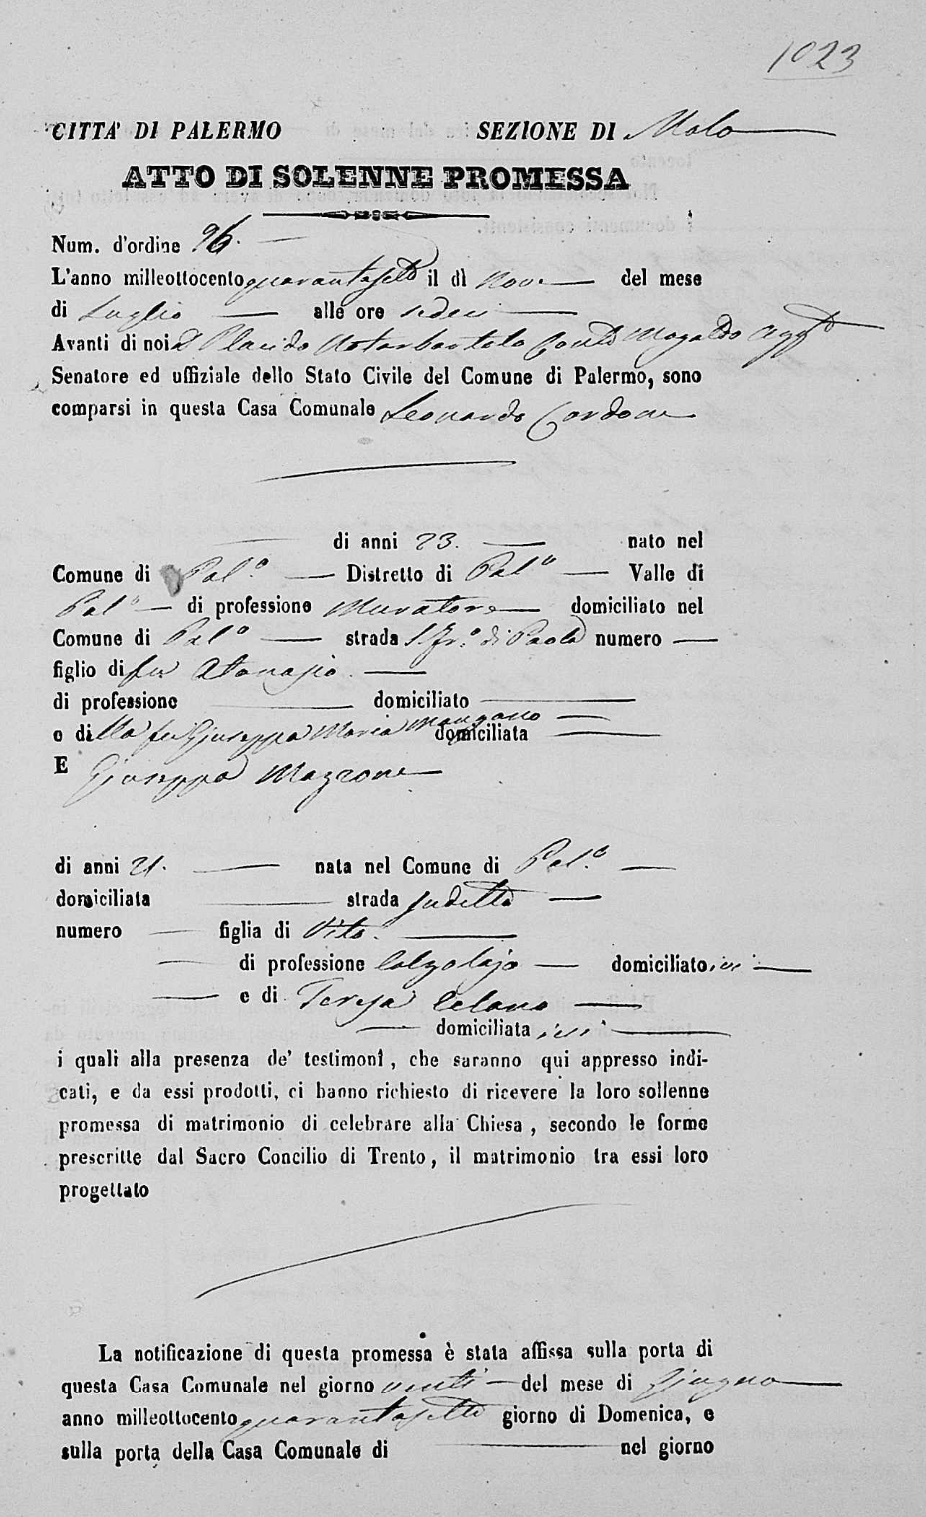 1023
CITTA' DI PALERMO SEZIONE DI Molo
ATTO DI SOLENNE PROMESSA
Num. d'ordine 96.
L'anno milleottocento quarantasette il dì nove del mese
di Luglio alle ore sedeci
Avanti di noi D. Placido Notarbartolo Conte
Senatore ed uffiziale dello Stato Civile del Comune di Palermo, sono
comparsi in questa Casa Comunale Leonardo Cordone
di anni 23. nato nel
Comune di Pal.o Distretto di Pal.o Valle di
Pal.o di professione Muratore domiciliato nel
Comune di Pal.o strada S. Fr.o di Paola numero
figlio di fu Atanasio
di professione domiciliato
e di lla fu Giuseppa Maria Mangano domiciliata
E Giuseppa Mazzone
di anni 21. nata nel Comune di Pal.o
domiciliata strada sudetta
numero figlia di Vito.
di professione Calzolajo domiciliato ivi
e di Teresa Celano
domiciliata ivi
i quali alla presenza de' testimonî, che saranno qui appresso indi-
cati, e da essi prodotti, ci hanno richiesto di ricevere la loro sollenne
promessa di matrimonio di celebrare alla Chiesa, secondo le forme
prescritte dal Sacro Concilio di Trento, il matrimonio tra essi loro
progettato
La notificazione di questa promessa è stata affissa sulla porta di
questa Casa Comunale nel giorno venti del mese di Giugno
anno milleottocento quarantasette giorno di Domenica, e
sulla porta della Casa Comunale di nel giorno